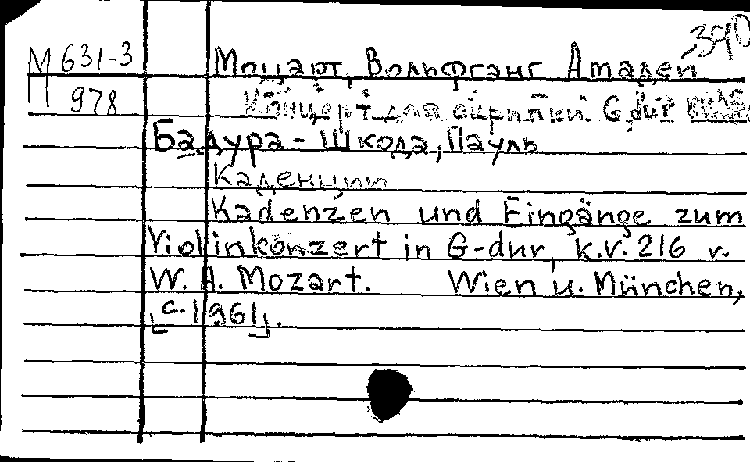 390
М 631-3 Моцарт, Вольфганг Амадей
978 Концерт для скрипки G dur
Бадура-Шкода, Пауль
Каденции
Kadenzen und Eingänge zum
Violinkonzert in G-dur, k.v. 216 v.
W. A. Mozart. Wien u. München,
[c. 1961].